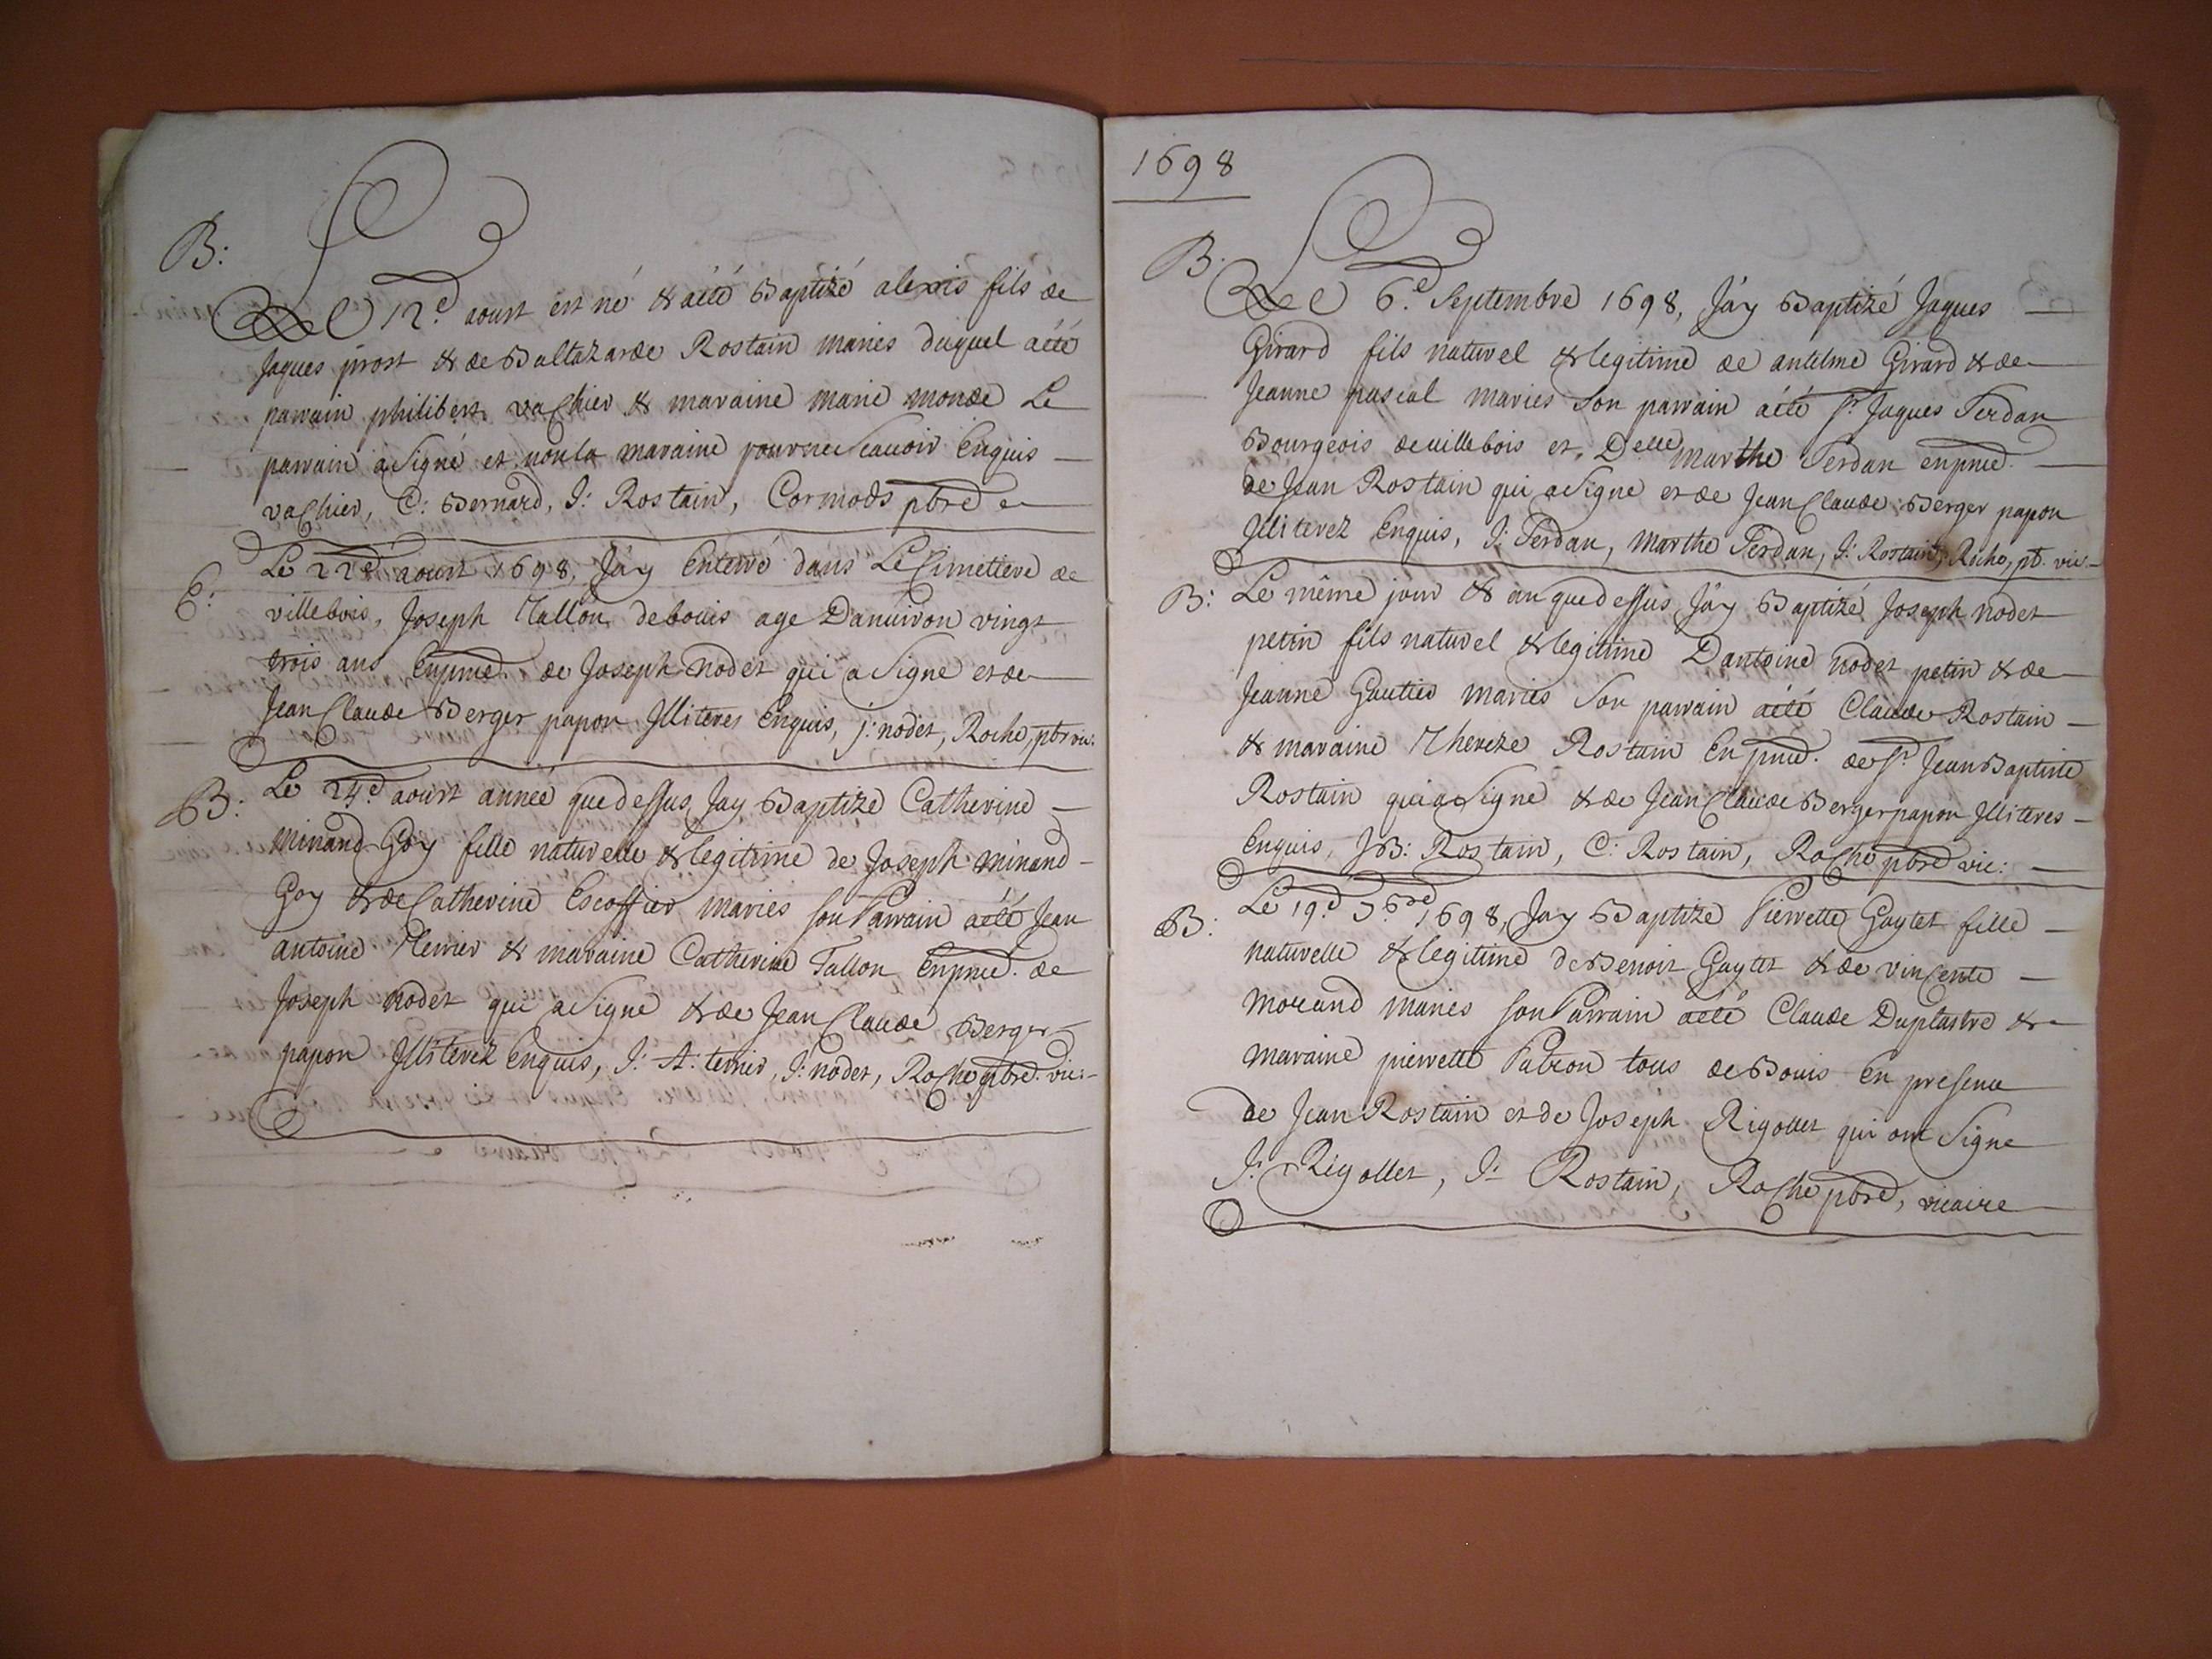 B:
Le 12e aoust est né & aété Baptizé alexis fils de
Jaques prost & de Baltazarde Rostain maries duquel aété
parrain philibert vachier & maraine marie monde Le
parrain aSigné et non la maraine pour nesCauoir Enquis —
vachier, C: Bernard, J: Rostain, Cormods pbre
E:
Le 22e aoust 1698, Jáy Enterré dans LeCimettere de
villebois, Joseph Tallon debouis age Danuiron vingt
trois ans Enpnce. de Joseph nodet qui a Signe et de
Jean Claude Berger papon Jlliteres Enquis, j: nodet, Roche, pbr vic:
B:
Le 24e aoust année quedessus, Jay Baptizé Catherine —
minand Goy fille naturelle & legitime de Joseph minand -
Goy & de Catherine Escoffier mariés son Parrain aété Jean
antoine Terrier & maraine Catherine Tallon Enpnce. de
Joseph nodet qui aSigne & de Jean Claude Berger
papon Jlliterez Enquis, J: A: terrier, J: nodet, Roche pbre. vic:-
1698
B.
Le 6.e Septembre 1698, Jáy Baptizé Jaques —
Girard fils naturel & legitime de antelme Girard & de
Jeanne pascal maries Son parrain aété Sr Jaques Ferdan
Bourgeois de uillebois et, Delle marthe Ferdan enpnce. —
de Jean Rostain qui aSigne et de Jean Claude Berger papon
Jlliterez Enquis, J: Ferdan, Marthe Ferdan, J: Rostain, Roche, pb. vic.-
B:
Le même jour & an quedessus Jáy Baptizé Joseph nodet
petin fils naturel & legitime Dantoine nodet petin & de
Jeanne Gautier mariés Son parrain aété Claude Rostain —
& maraine Thereze Rostain En pnce. de Sr Jean Baptiste
Rostain qui aSigné & de Jean Claude Berger papon Jlliteres -
Enquis, JB: Rostain, C: Rostain, Roche pbre vic: —
B:
Le 19e 7bre 1698, Jay Baptize Pierrette Gaytet fille —
naturelle & legitime de Benoit Gaytet & de vinCente —
morand maries son Parrain aété Claude Duplastre &
maraine pierrette Patron tous de Bouis En presence
de Jean Rostain et de Joseph Rigollet qui ont Signe
J: Rigollet, J: Rostain, Roche pbre, vicaire